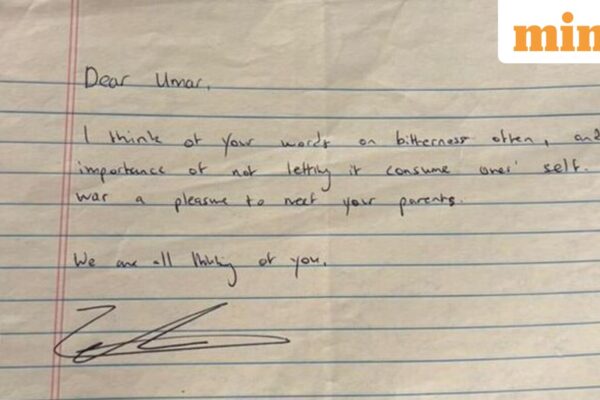 min
Dear Umar,
I think of your words on bitterness often, and
importance of not letting it consume ones' self.
was a pleasure to meet your parents.
We are all thinking of you.